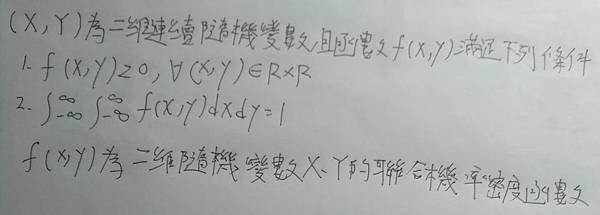 (X,Y)為二維連續隨機變數,且函數f(X,Y)滿足下列條件
1. f(X,Y)≥0, ∀(X,Y)∈R×R
2. ∫_{-∞}^{∞} ∫_{-∞}^{∞} f(X,Y)dxdy=1
f(X,Y)為二維隨機變數X、Y的聯合機率密度函數